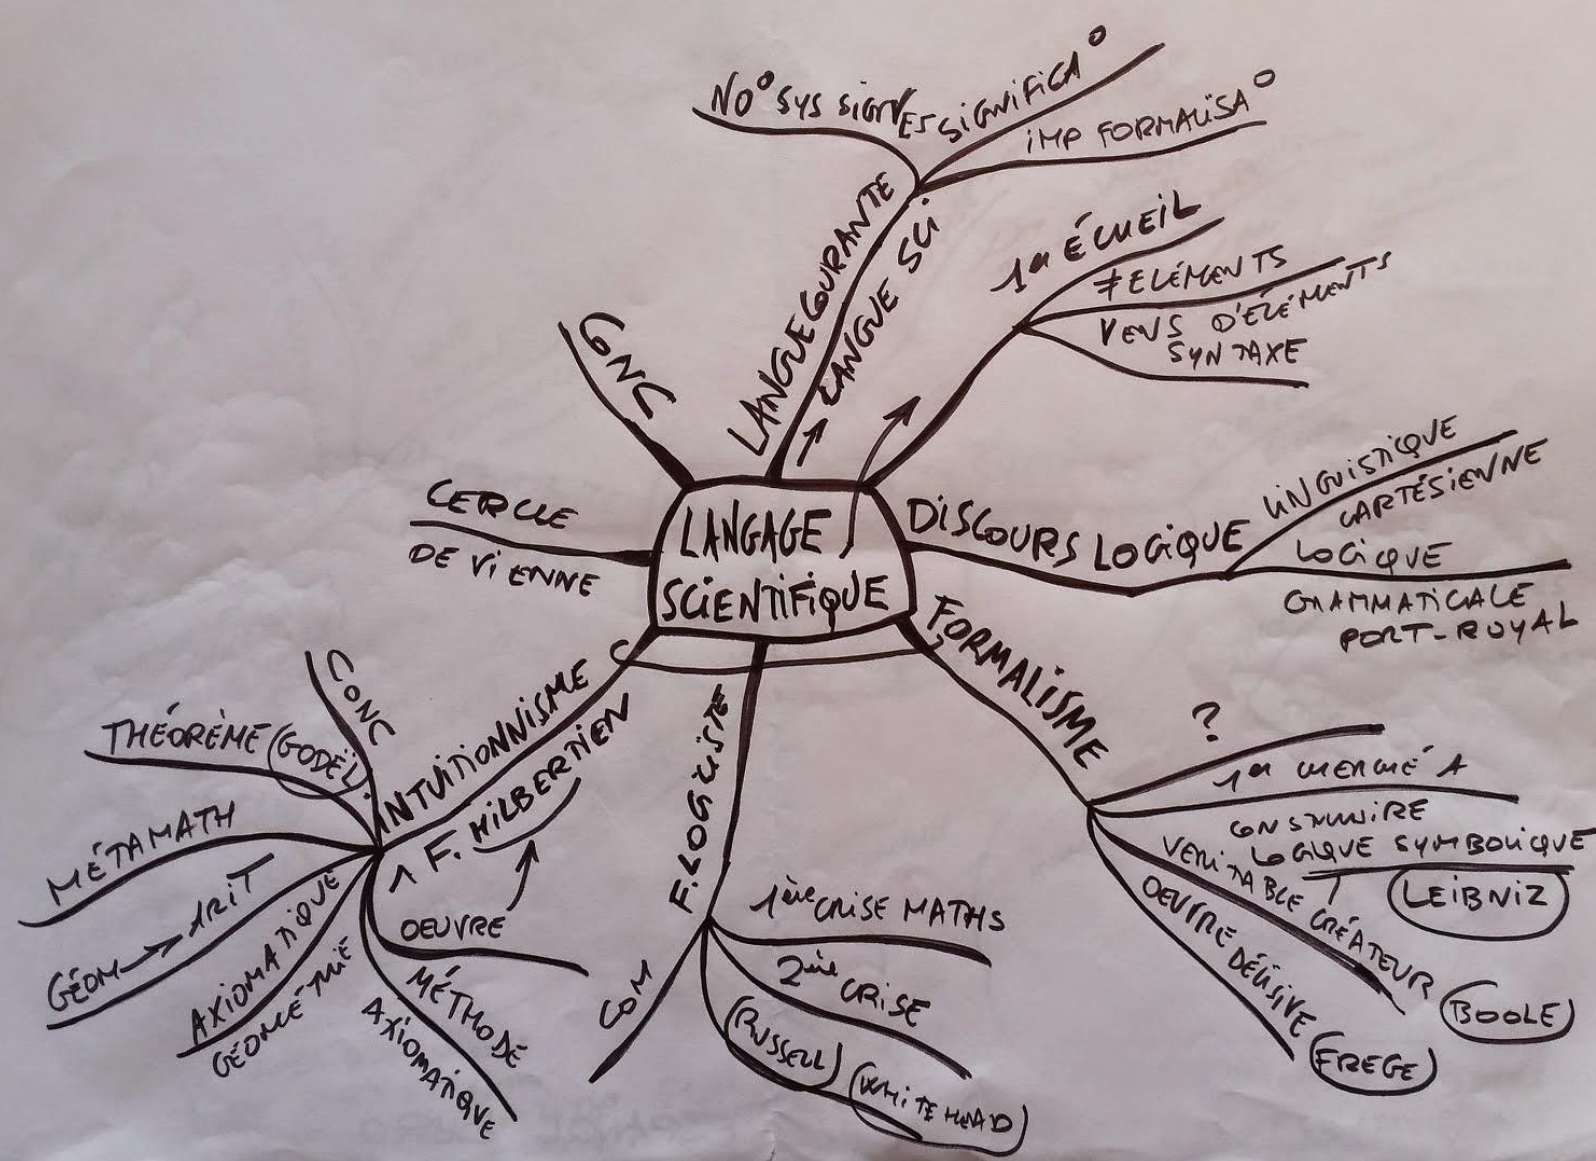 LANGAGE
SCIENTIFIQUE
CONC
LANGUE COURANTE
→ LANGUE SCI
NO° SYS SIGNES
SIGNIFICA°
IMP FORMALISA°
1er ÉCUEIL
≠ ELÉMENTS
VERS D'ÉLÉMENTS
SYNTAXE
DISCOURS LOGIQUE
LINGUISTIQUE
CARTÉSIENNE
LOGIQUE
GRAMMATICALE
PORT-ROYAL
FORMALISME
?
1er CHERCHÉ À
CONSTRUIRE
LOGIQUE SYMBOLIQUE
LEIBNIZ
VERITABLE CRÉATEUR
BOOLE
OEUVRE DÉCISIVE
FREGE
F. LOGICISTE
1ère CRISE MATHS
2ème CRISE
RUSSELL
WHITEHEAD
COM
INTUITIONNISME
F. HILBERTIEN
OEUVRE
MÉTHODE
AXIOMATIQUE
AXIOMATIQUE
GÉOMÉTRIE
GÉOM → ARIT
MÉTAMATH
THÉORÈME GODËL
CONC
CERCLE
DE VIENNE